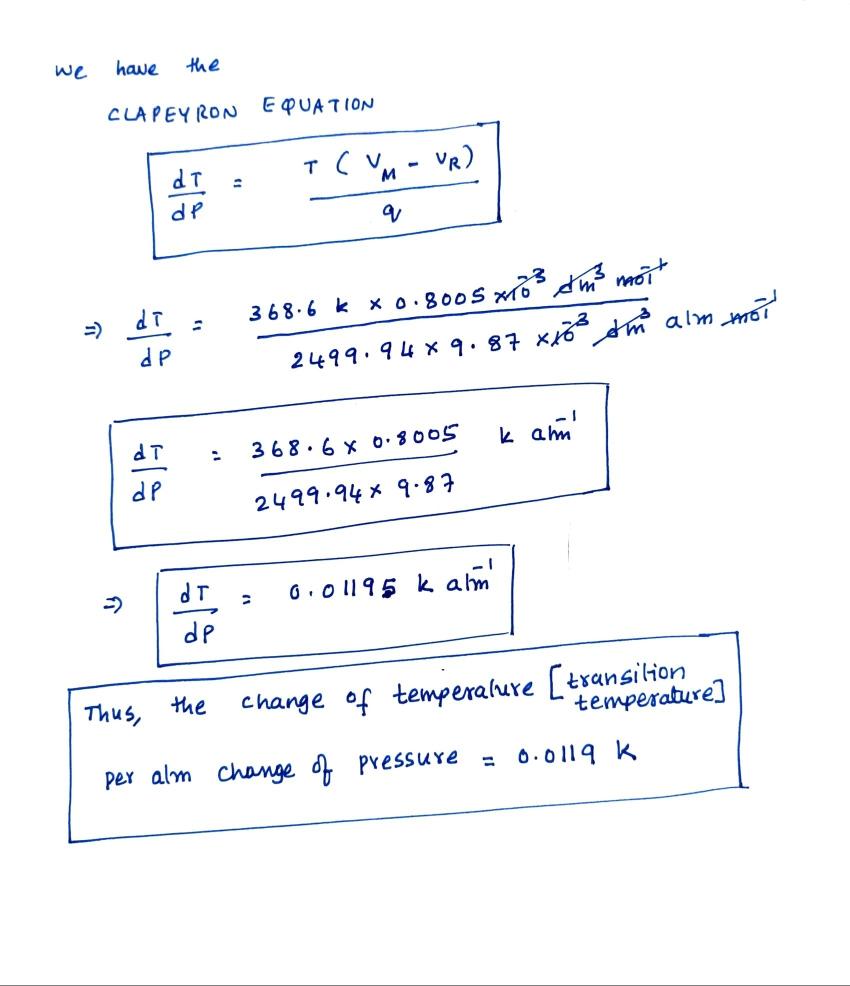 we have the
CLAPEYRON EQUATION
dT/dP = T ( VM - VR) / q
=> dT/dP = 368.6 k x 0.8005 x10⁻³ dm³ mol⁻¹ / 2499.94 x 9.87 x10⁻³ dm³ atm mol⁻¹
dT/dP = 368.6 x 0.8005 / 2499.94 x 9.87 k atm⁻¹
=> dT/dP = 0.01195 k atm⁻¹
Thus, the change of temperature [transition temperature]
per atm change of pressure = 0.0119 k